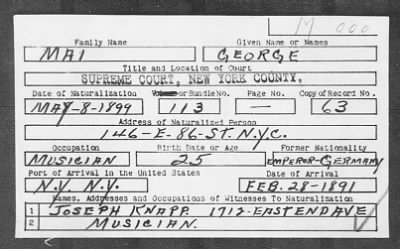 M 000
Family Name Given Name or Names
MAI GEORGE
Title and Location of Court
SUPREME COURT, NEW YORK COUNTY,
Date of Naturalization Volume or Bundle No. Page No. Copy of Record No.
MAY-8-1899 113 — 63
Address of Naturalized Person
146-E-86-ST. N.Y.C.
Occupation Birth Date or Age Former Nationality
MUSICIAN 25 EMPEROR-GERMANY
Port of Arrival in the United States Date of Arrival
N.Y. N.Y. FEB. 28-1891
Names, Addresses and Occupations of Witnesses To Naturalization
1 JOSEPH KNAPP. 1712-EASTEND AVE
2 MUSICIAN.